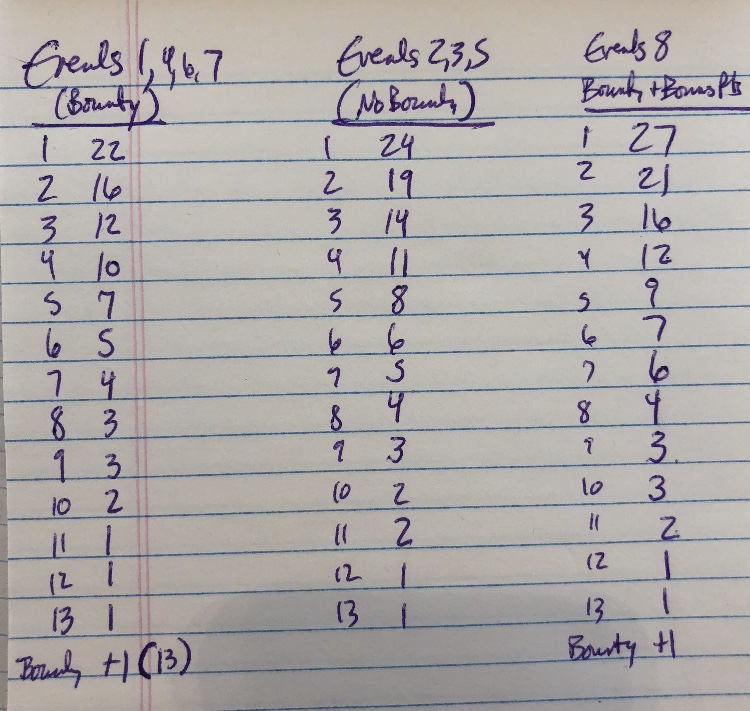 Events 1, 4, 6, 7
(Bounty)
1 22
2 16
3 12
4 10
5 7
6 5
7 4
8 3
9 3
10 2
11 1
12 1
13 1
Bounty +1 (13)
Events 2,3,5
(No Bounty)
1 24
2 19
3 14
4 11
5 8
6 6
7 5
8 4
9 3
10 2
11 2
12 1
13 1
Events 8
Bounty + Bonus Pts
1 27
2 21
3 16
4 12
5 9
6 7
7 6
8 4
9 3
10 3
11 2
12 1
13 1
Bounty +1